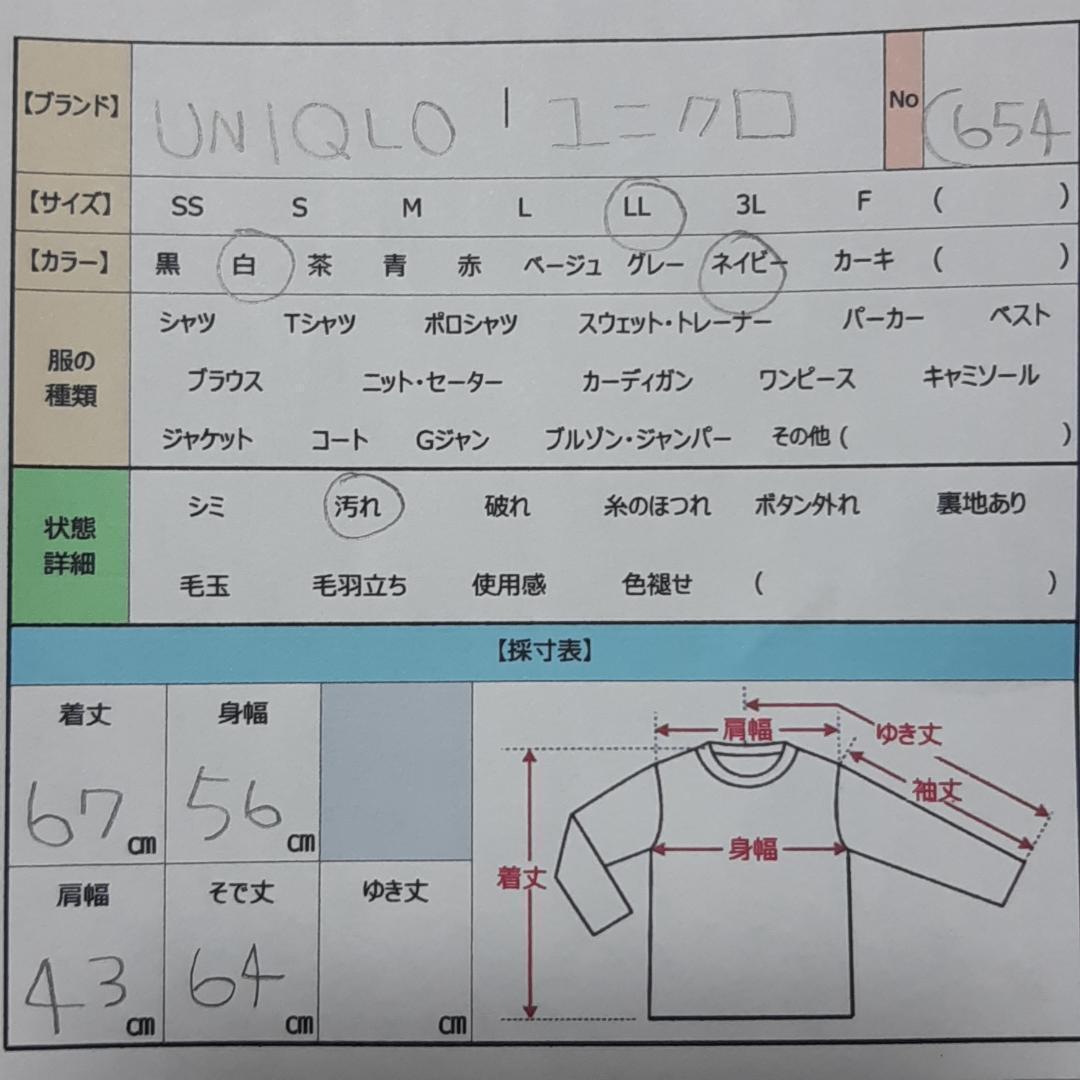 【ブランド】 UNIQLO | ユニクロ No (654
【サイズ】 SS S M L LL 3L F ( )
【カラー】 黒 白 茶 青 赤 ベージュ グレー ネイビー カーキ ( )
服の種類
シャツ Tシャツ ポロシャツ スウェット・トレーナー パーカー ベスト
ブラウス ニット・セーター カーディガン ワンピース キャミソール
ジャケット コート Gジャン ブルゾン・ジャンパー その他 ( )
状態詳細
シミ 汚れ 破れ 糸のほつれ ボタン外れ 裏地あり
毛玉 毛羽立ち 使用感 色褪せ ( )
【採寸表】
着丈 身幅
67cm 56cm
肩幅 そで丈 ゆき丈
43cm 64cm cm
肩幅 ゆき丈
袖丈
身幅
着丈